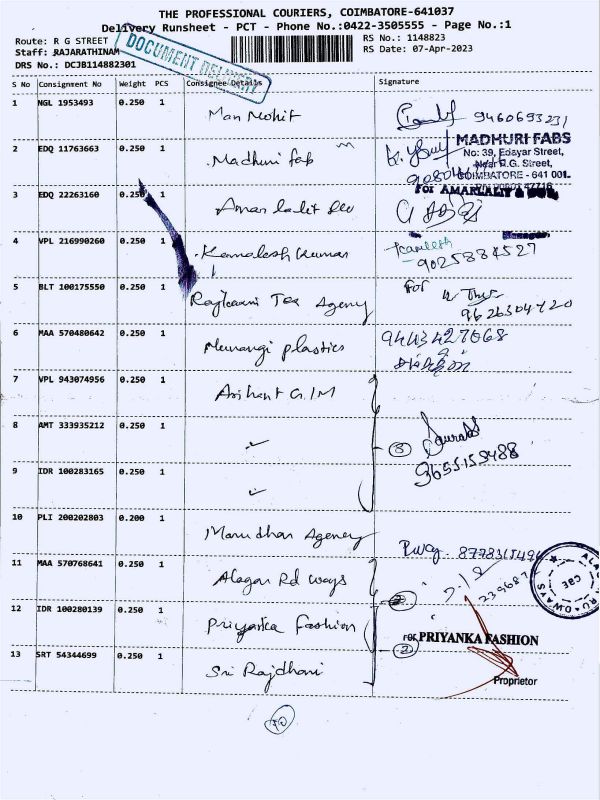 THE PROFESSIONAL COURIERS, COIMBATORE-641037
Delivery Runsheet - PCT - Phone No.:0422-3505555 - Page No.:1
Route: R G STREET RS No.: 1148823
Staff: RAJARATHINAM RS Date: 07-Apr-2023
DRS No.: DCJB114882301
DOCUMENT DELIVERY
S No Consignment No Weight PCS Consignee Details Signature
1 NGL 1953493 0.250 1 Man Mohit 9460693231
2 EDQ 11763663 0.250 1 Madhuri fab
MADHURI FABS
No: 39, Edayar Street,
Near R.G. Street,
COIMBATORE - 641 001.
3 EDQ 22263160 0.250 1 Aman Lalit
For AMAR LALIT &
Manager
4 VPL 216990260 0.250 1 Kamalesh Kumar Kamlesh
9025884527
5 BLT 100175550 0.250 1 Rajlaxmi Tex Agency For
9626304420
6 MAA 570480642 0.250 1 plastics 9443427068
7 VPL 943074956 0.250 1 Arihant G.I.M
8 AMT 333935212 0.250 1 ✓ 3 Saurabh
9655159488
9 IDR 100283165 0.250 1 ✓
10 PLI 200202803 0.200 1 Marudhar Agency
11 MAA 570768641 0.250 1 Alagar Rd ways 2
12 IDR 100280139 0.250 1 Priyanka Fashion
For PRIYANKA FASHION
2
13 SRT 54344699 0.250 1 Sri Rajdhani
Proprietor